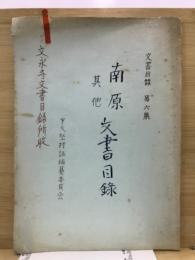 文書目録 第六集
南原
其他
文書目録
下久堅村誌編纂委員会
文永寺文書目録所收